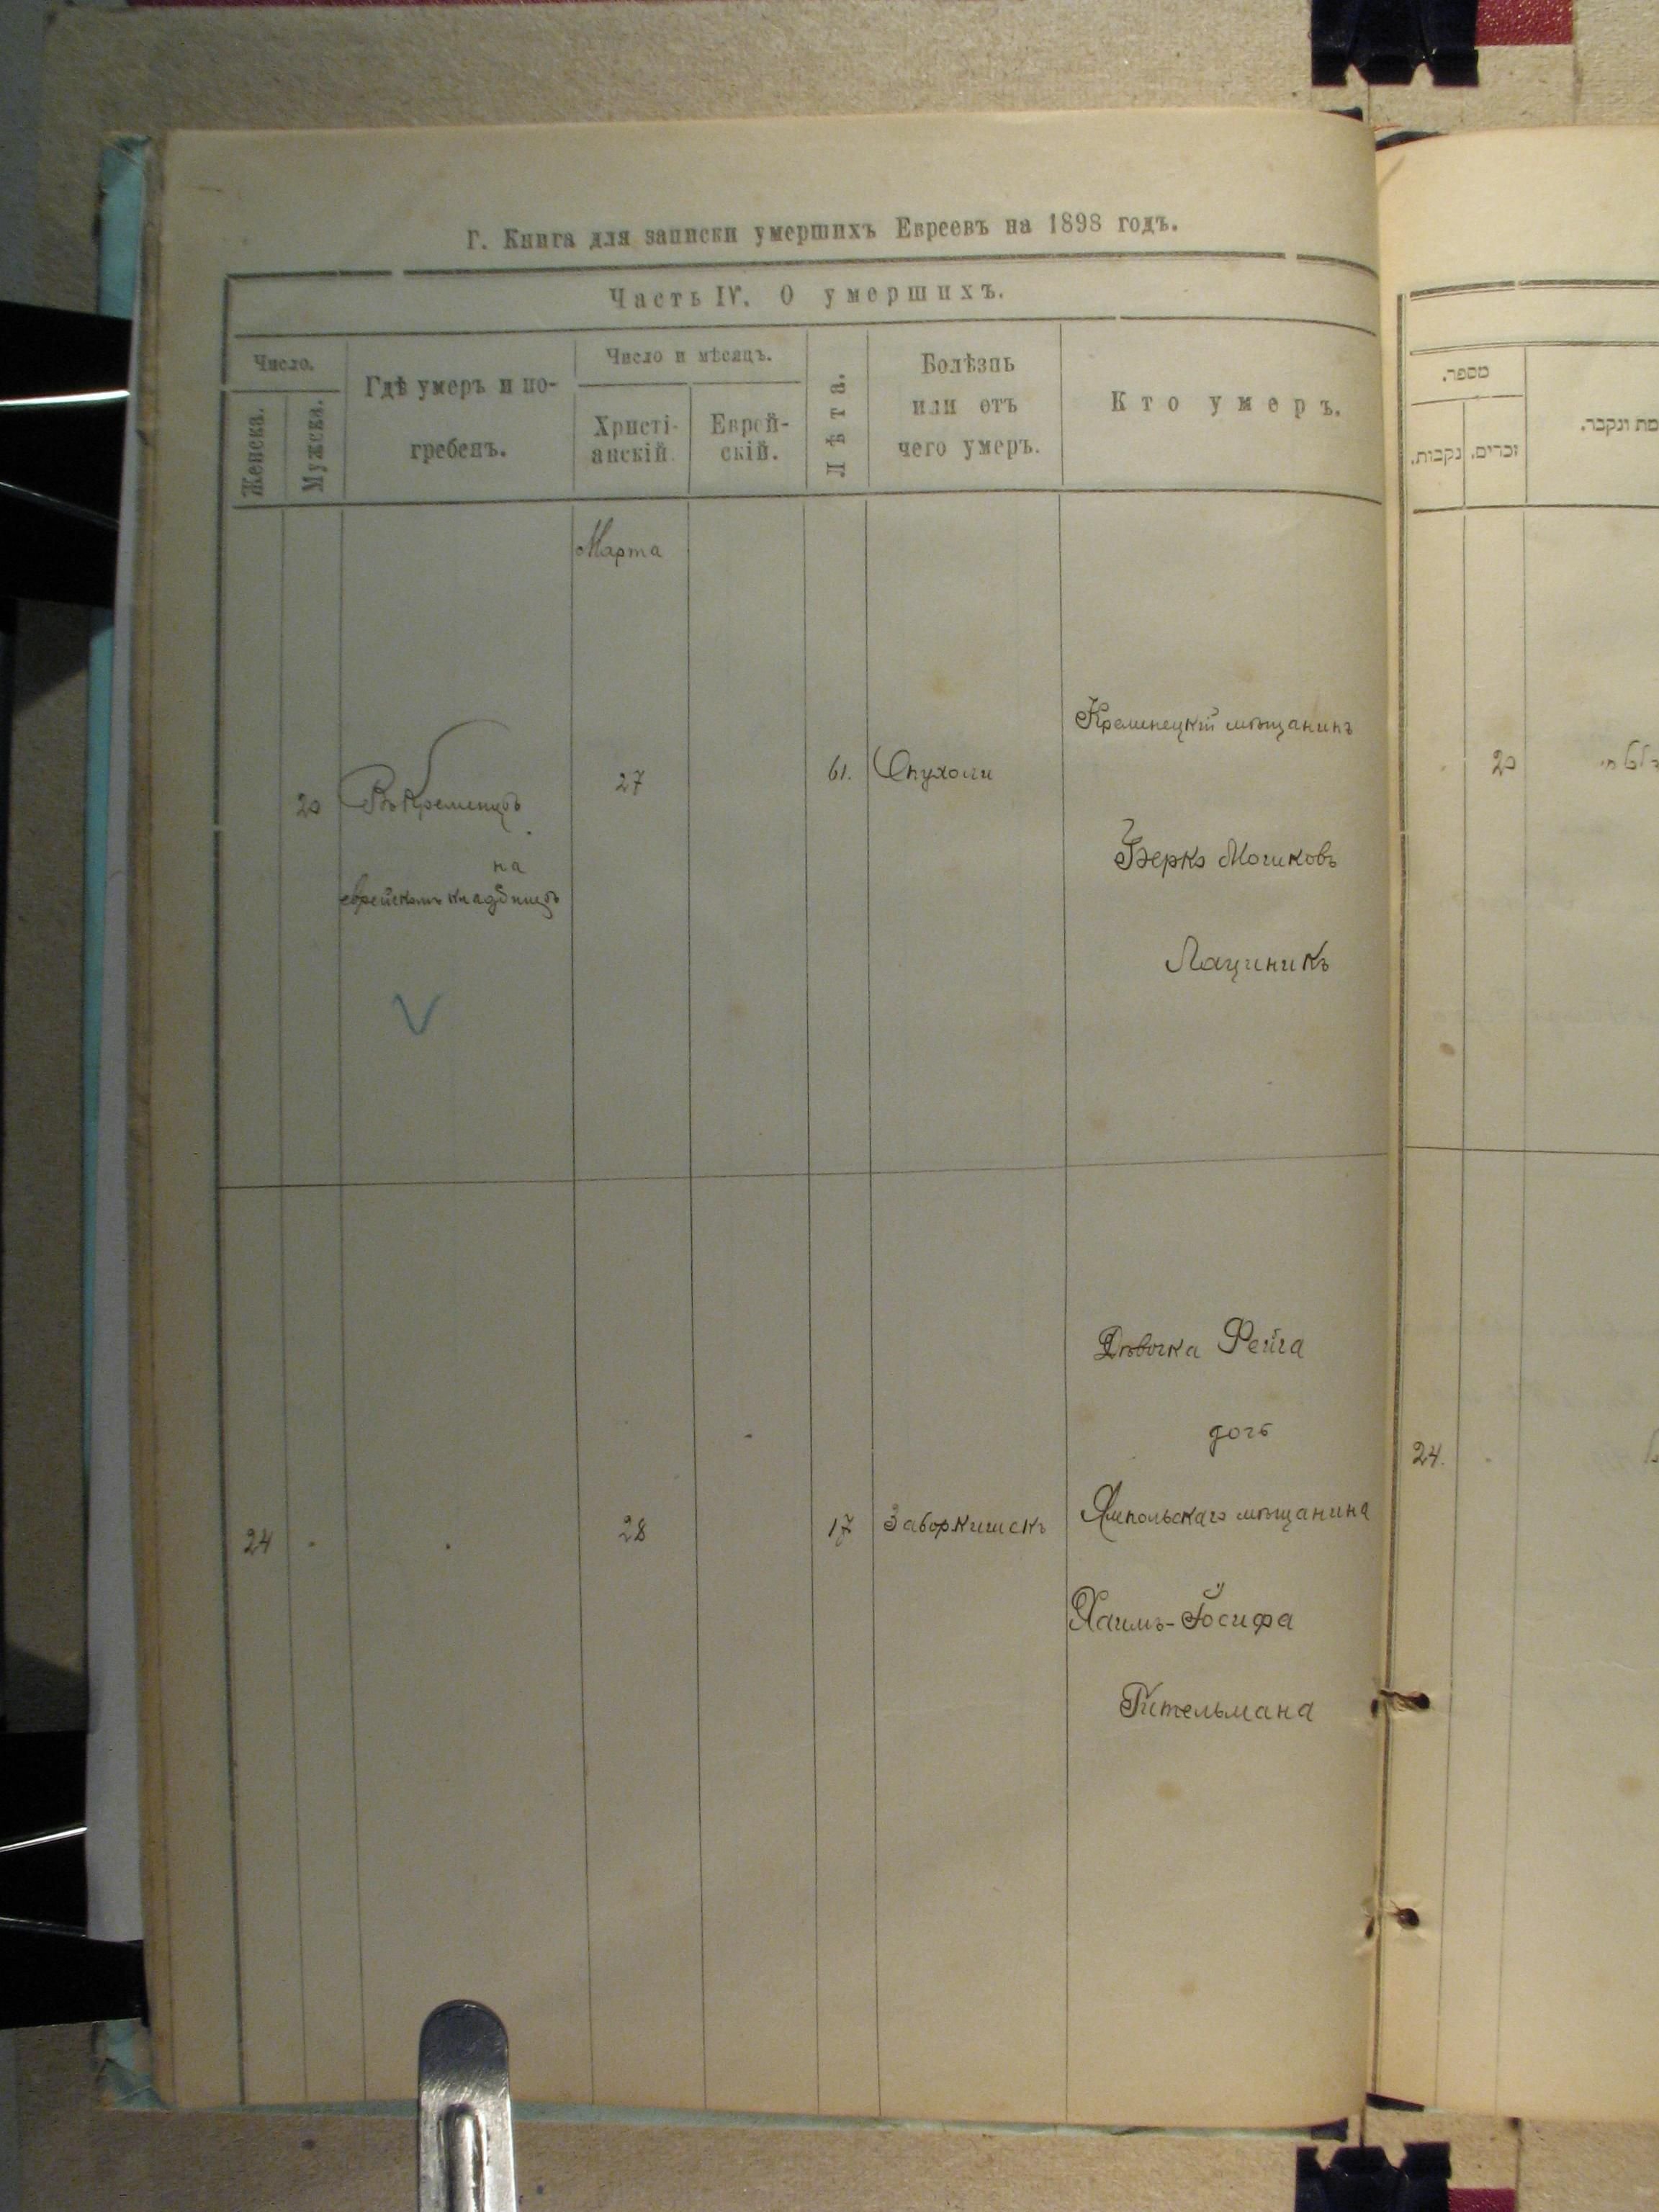 Г. Книга для записки умершихъ Евреевъ на 1898 годъ.
Часть IV. О умершихъ.
Число.
Женска.
Мужска.
Гдѣ умеръ и по-
гребенъ.
Число и мѣсяцъ.
Христі-
анскій.
Еврей-
скій.
Лѣта.
Болѣзнь
или отъ
чего умеръ.
Кто умеръ.
Марта
20
Въ Кременцѣ
на
еврейскомъ кладбищѣ
27
61.
Опухоли
Кременецкій мѣщанинъ
Берко Мошковъ
Лациникъ
24
28
17
Дѣвочка Фейга
дочь
Ямпольскаго мѣщанина
Хаимъ-Іосифа
Гительмана
מספר.
נקבות.
זכרים.
מת ונקבר.
20
24.